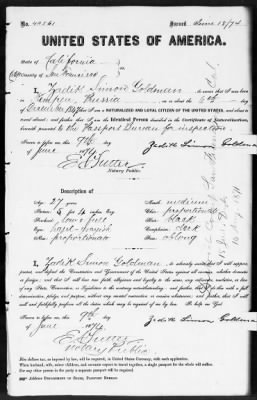 No. 40561 Issued June 18/74
UNITED STATES OF AMERICA.
State of California
County of San Francisco
I, Zadith Simon Goldman
born in Kempen, Russia on or about the 6th day
of
that I am a NATURALIZED AND LOYAL CITIZEN OF THE UNITED STATES, and about to
travel abroad; and further, that I am the Identical Person described in the Certificate of Naturalization,
herewith presented to the Passport Bureau for inspection.
Sworn to before me, this 9th day
of June 1874
Zadith Simon Goldman
Notary Public.
Description of
Age: 27 years
Stature: 5 ft 4 Eng.
Forehead:
Eyes: hazel
Nose: proportionate
Mouth: medium
Chin: proportionate
Hair: black
Complexion: dark
Face: oblong
I, Zadith Simon Goldman, do solemnly swear that I will support,
protect, and defend the Constitution and Government of the United States against all enemies, whether domestic
or foreign; and that I will bear true faith, allegiance, and loyalty to the same, any ordinance, resolution, or law
of any State, Convention, or Legislature to the contrary notwithstanding; and further, that I do this with a full
determination, pledge, and purpose, without any mental reservation or evasion whatsoever; and further, that I will
well and faithfully perform all the duties which may be required of me by law. So help me God.
Sworn to before me, this 9th day
of June 1874
Zadith Simon Goldman
Notary Public
Address DEPARTMENT OF STATE, PASSPORT BUREAU